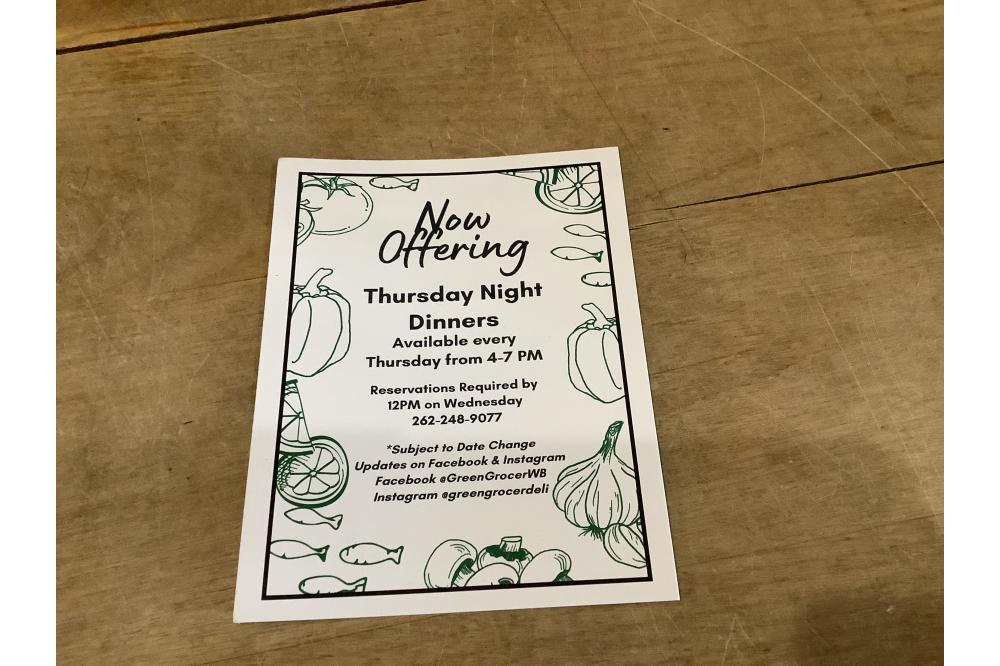 Now
Offering
Thursday Night
Dinners
Available every
Thursday from 4-7 PM
Reservations Required by
12PM on Wednesday
262-248-9077
*Subject to Date Change
Updates on Facebook & Instagram
Facebook @GreenGrocerWB
Instagram @greengrocerdeli